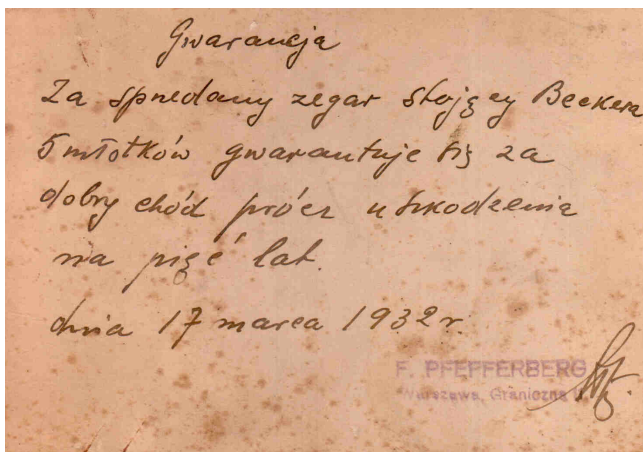 Gwarancja
Za sprzedany zegar stojący Beckera
5 młotków gwarantuje się za
dobry chód prócz uszkodzenia
na pięć lat.
dnia 17 marca 1932 r.
F. PFEFFERBERG
Warszawa, Graniczna